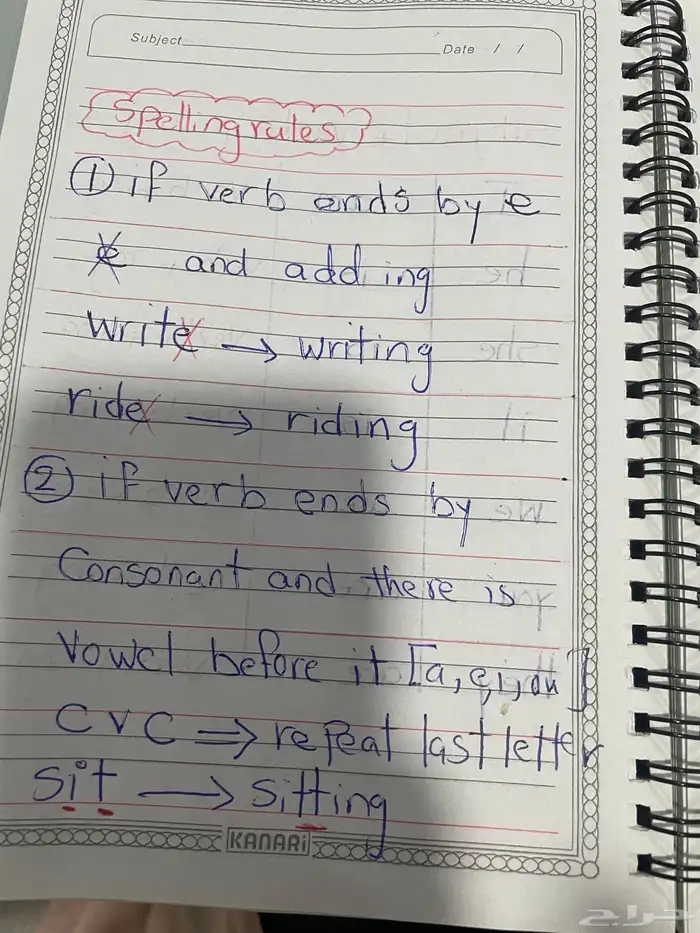 Subject Date / /
Spelling rules
① if verb ends by e
e and add ing
write → writing
ride → riding
② if verb ends by
Consonant and there is
Vowel before it [a, e, i, ou]
CVC ⇒ repeat last letter
sit → sitting
KANARi
حراج